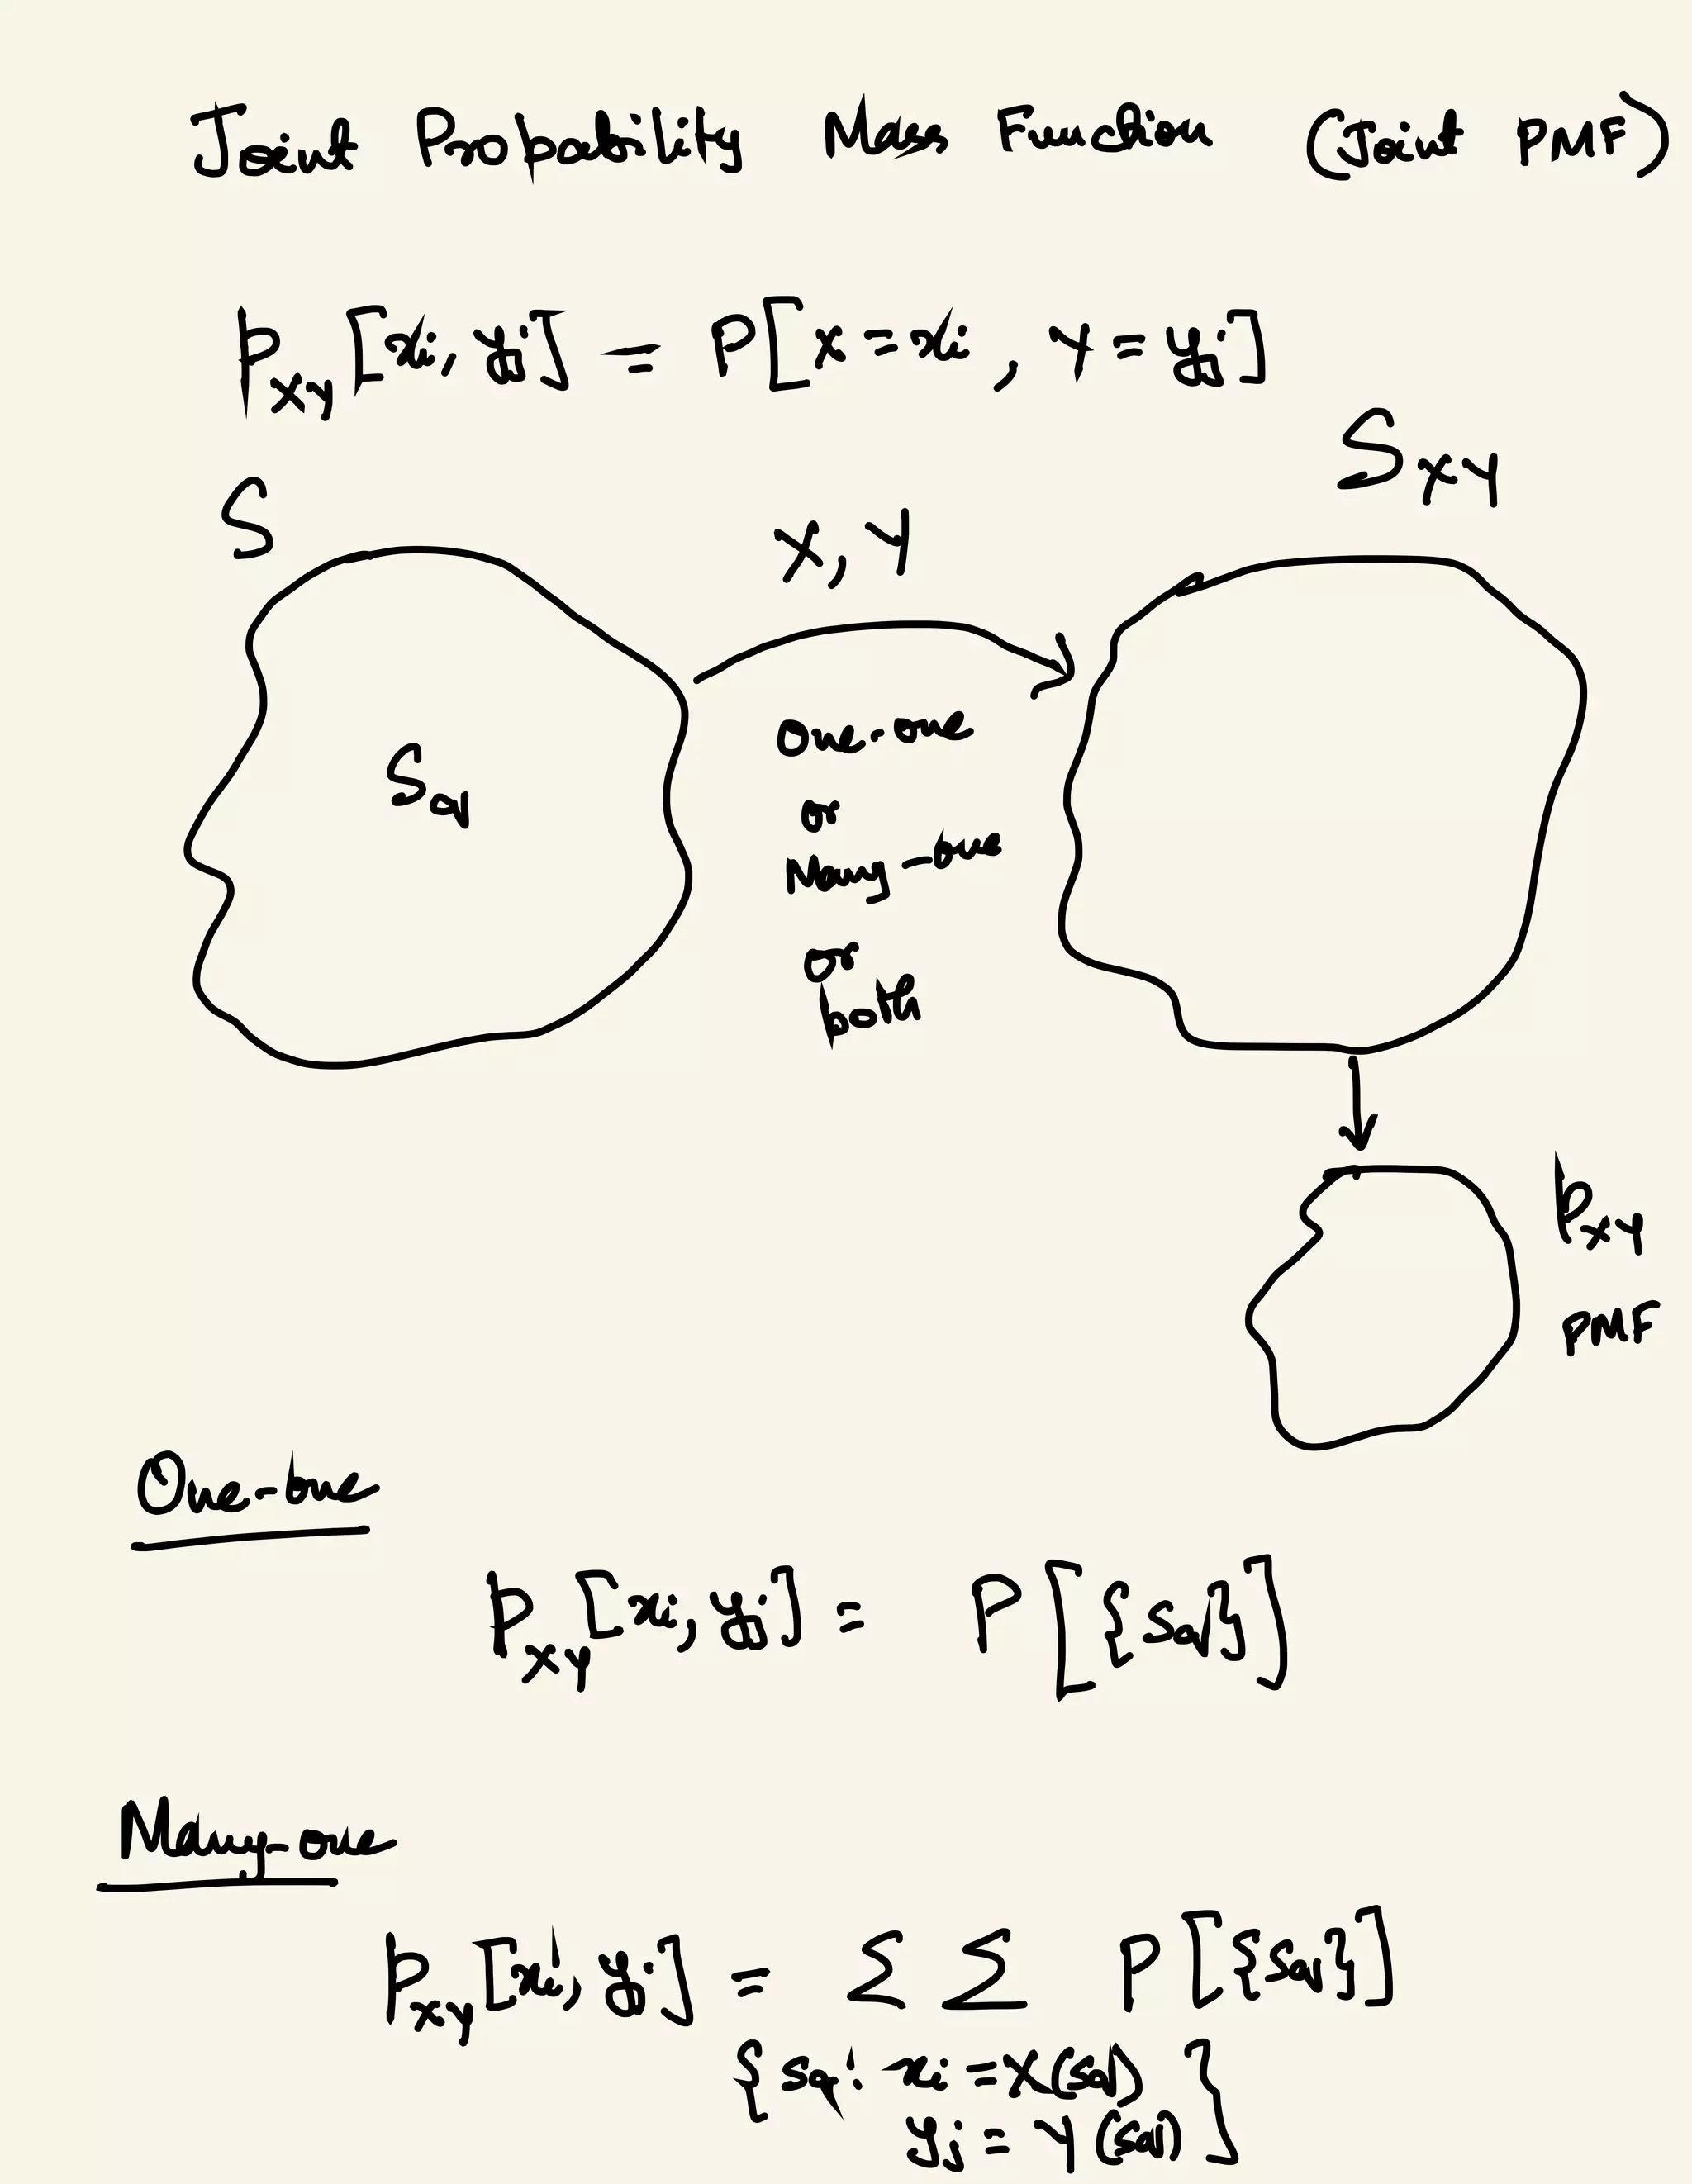 Joint Probability Mass Function (Joint PMF)
p_XY [xi, yj] = P[X = xi, Y = yj]
S
S_XY
X, Y
Sq
One-one
or
Many-one
or
both
p_XY
PMF
One-one
p_XY [xi, yj] = P[{sq}]
Many-one
p_XY [xi, yj] = Σ Σ P[{sq}]
{sq: xi = X(sq)
yj = Y(sq)}